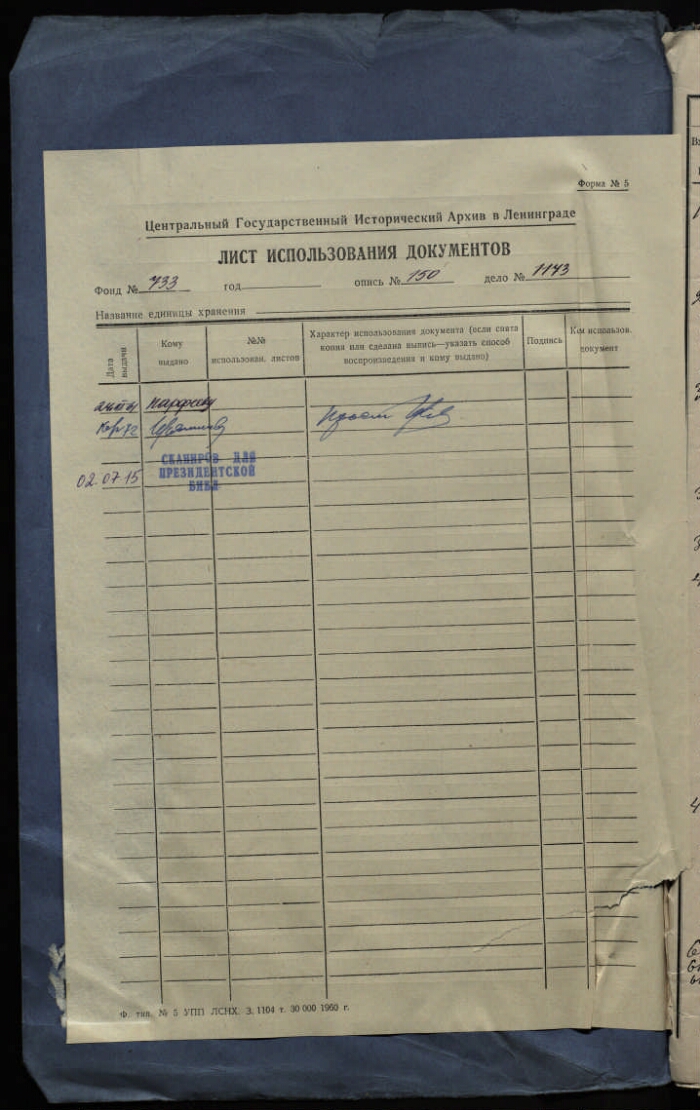 Форма № 5
Центральный Государственный Исторический Архив в Ленинграде
ЛИСТ ИСПОЛЬЗОВАНИЯ ДОКУМЕНТОВ
Фонд № 733 год опись № 150 дело № 1143
Название единицы хранения
Дата выдачи
Кому выдано
№№ использован. листов
Характер использования документа (если снята копия или сделана выпись—указать способ воспроизведения и кому выдано)
Подпись
Кем использов. документ
СКАНИРОВ ДЛЯ
02.07.15 ПРЕЗИДЕНТСКОЙ
БИБЛ
Ф. тип. № 5 УПП ЛСНХ. З. 1104 т. 30 000 1960 г.